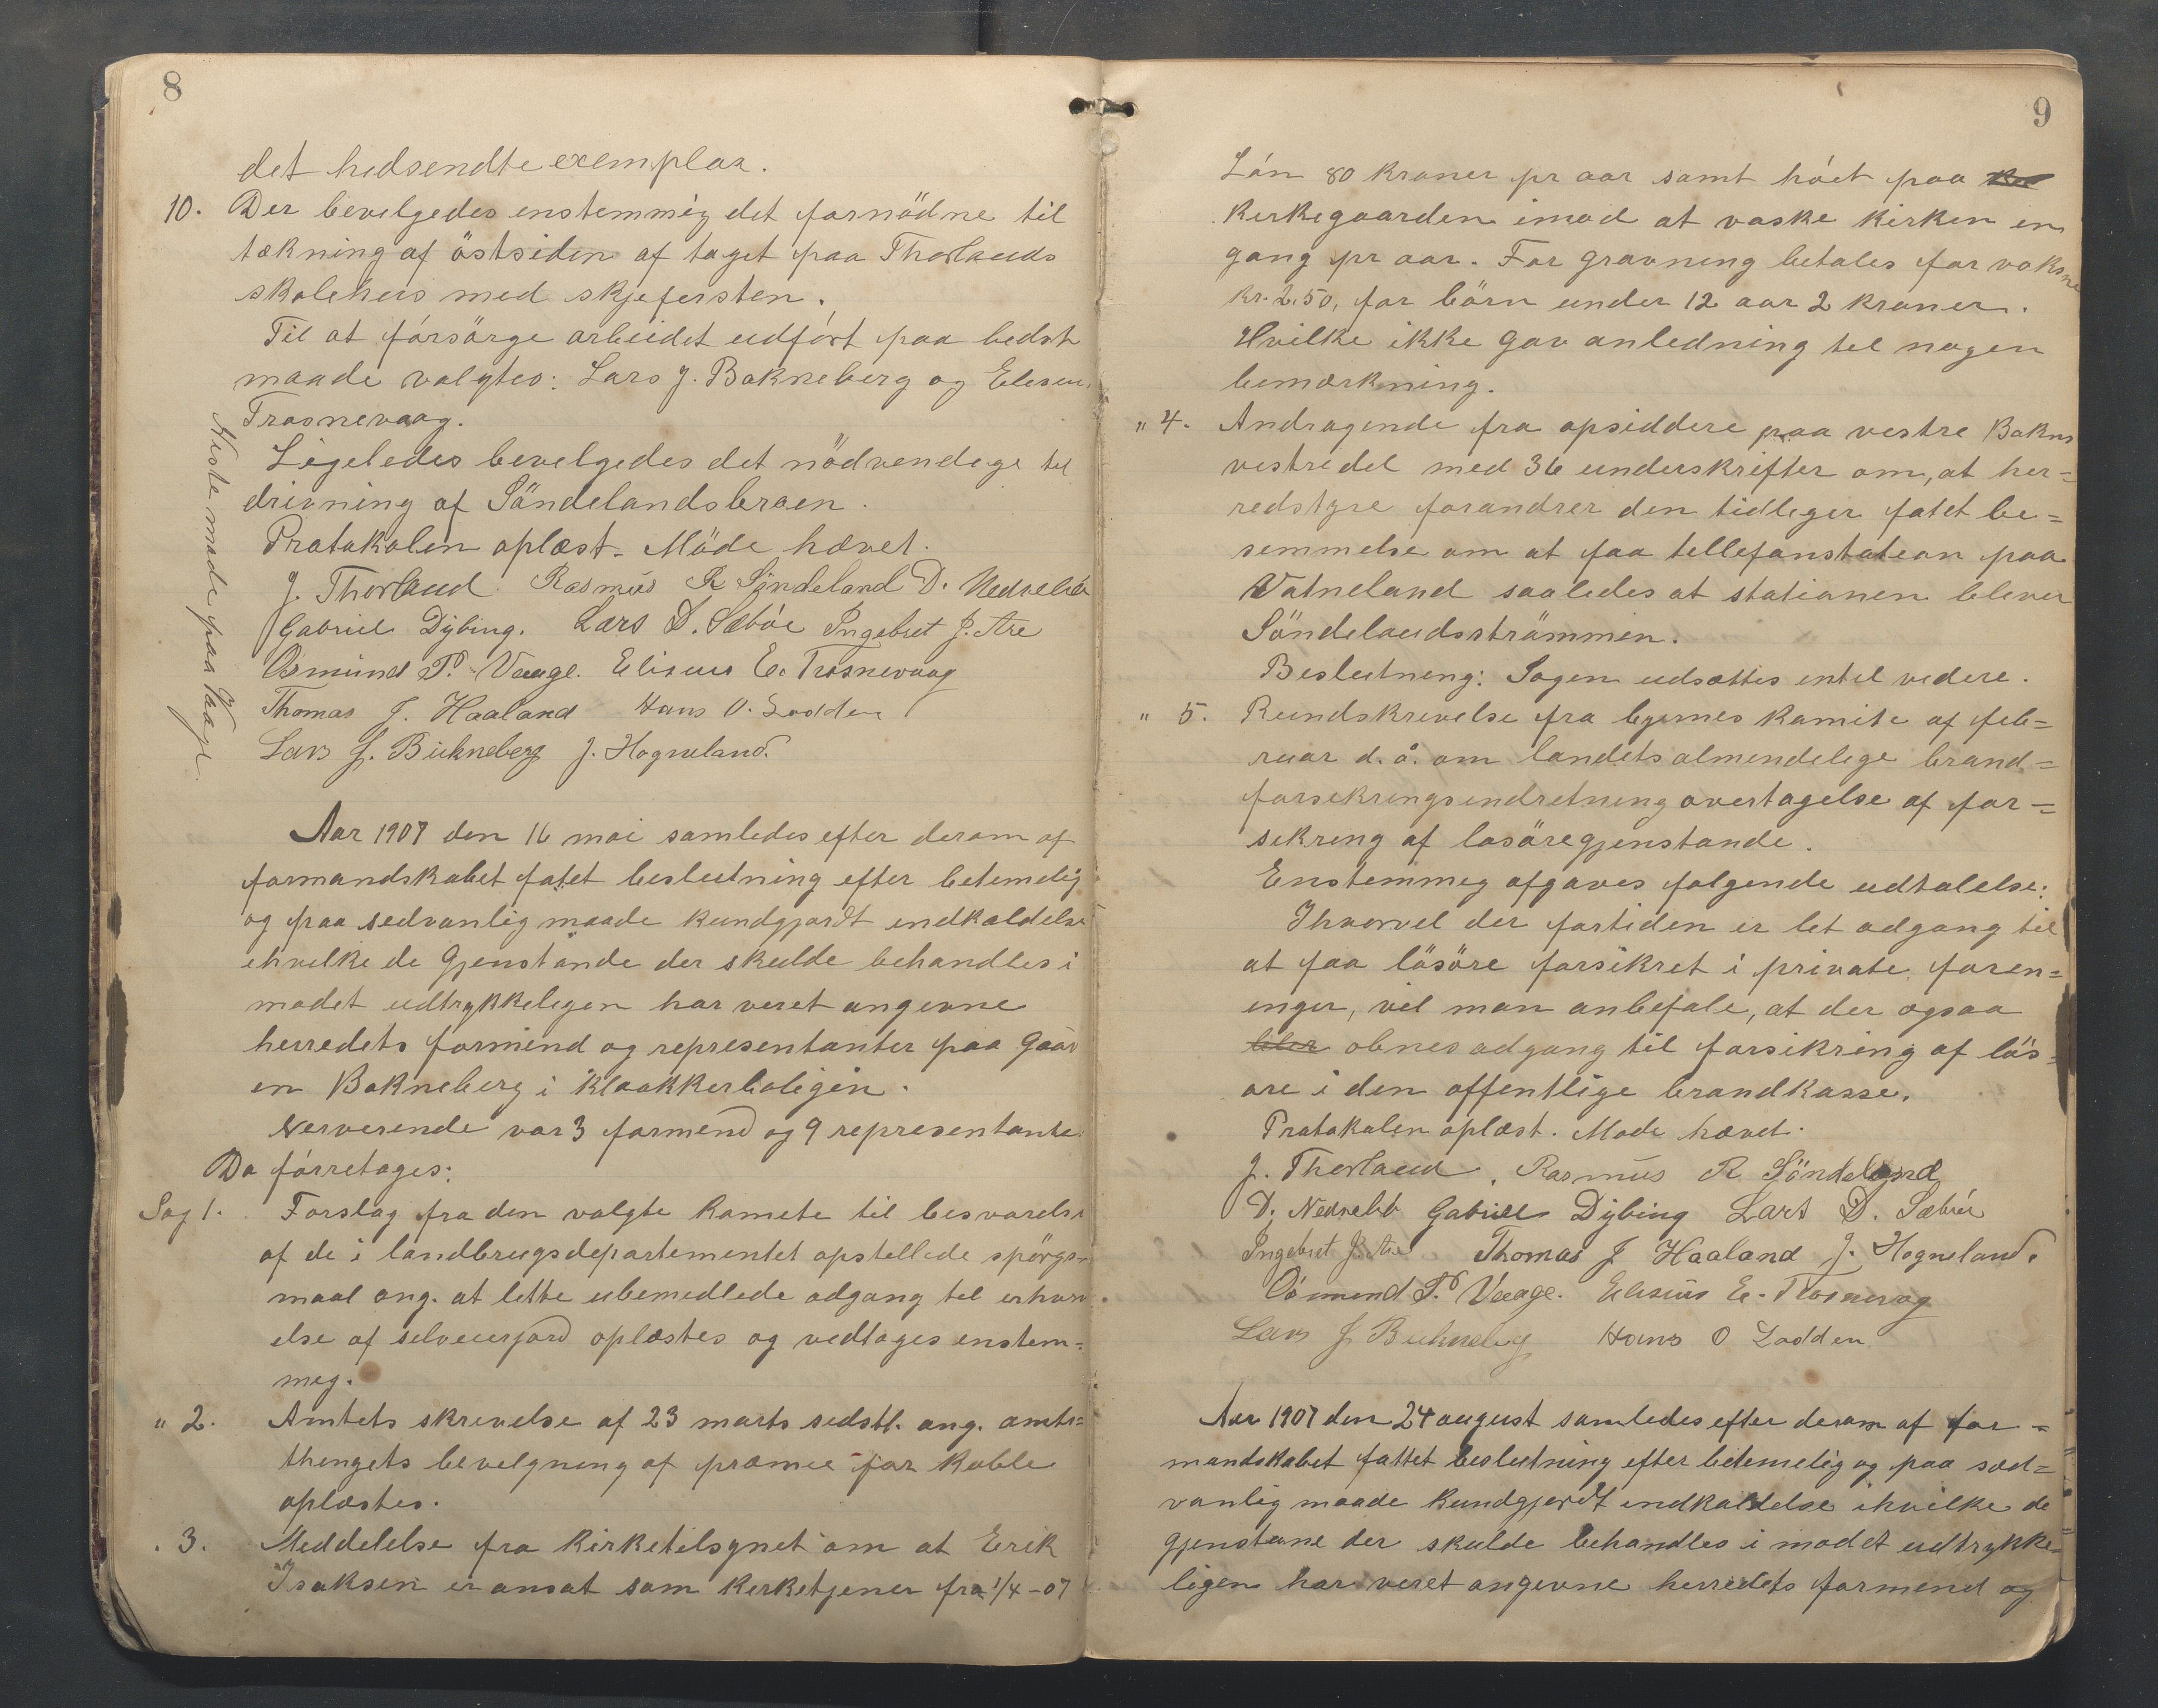 8
det hedsendte exemplar.
10. Der bevelgedes enstemmig det fornödne til
tækning af östsiden af taget paa Thorlands
skolehus med skjefersten.
Til at försörge arbeidet udført paa bedste
maade valgtes: Lars J. Bokneberg og Eleseus
Trosnevaag.
Ligeledes bevelgedes det nödvendege til
drivning af Söndelandsbroen.
Protokolen oplæst. Möde hævet.
J. Thorland. Rasmus R Söndeland D. Nedrebö
Gabriel Dybing. Lars D. Sæböe Ingebret J. Are
Osmund P. Vaage. Eliseus E. Trosnevaag
Thomas J. Haaland Hans O. Lodden
Lars J. Bukneberg J. Hogneland.
Neste mode paa Vaage.
Aar 1907 den 16 mai samledes efter derom af
formandskabet fatet beslutning efter betemelig
og paa sedvanlig maade kundgjordt endkaldelse
ehvelke de Gjenstande der skulde behandles i
modet udtrykkelegen har veret angevne
herredets formend og representanter paa Gaard
en Bokneberg i klaakkerboligen.
Nerverende var 3 formend og 9 representanter
Da förretages:
Sag 1. Forslag fra den valgte komete til besvarelse
af de i landbrugsdepartementet opstellede spörgs-
maal ang. at lette ubemedlede adgang tel erhverv
else af selveierjord oplæstes og vedtages enstem-
meg.
" 2. Amtets skrevelse af 23 marts sedstl. ang. amts=
thengets bevelgneng af præmee for kobbe
oplæstes.
" 3. Meddelelse fra kirketelsynet om at Erik
Isaksen er ansat som kerketjener fra 1/4-07
9
Lön 80 kroner pr aar samt höet paa
kerkegaarden imod at vaske kirken en
gang pr aar. For gravning betales for voksne
kr. 2.50, for börn under 12 aar 2 kroner.
Hvilke ikke gav anledning tel nogen
bemærkning.
" 4. Andragende fra opsiddere paa vestre Bokns
vestredel med 36 underskrifter om, at her=
redstyre forandrer den tidleger fatet be=
semmelse om at faa tellefonstateon paa
Vatneland saaledes at stationen blever
Söndelandsströmmen.
Beslutneng: Sagen udsættes entel vedere.
" 5. Rundskrevelse fra byernes komite af feb=
ruar d. å. om landets almendelege brand=
forsekrengsendretneng overtagelse af for=
sekreng af losöregjenstande.
Enstemmeg afgaves folgende udtalelse:
Ihvorvel der fortiden er let adgang til
at faa lösöre forsikret i private foren=
enger, vil man anbefale, at der ogsaa
bler obnes adgang til forsikring af lös=
ore i den offentlige brandkasse.
Protokolen oplæst. Mode hævet.
J. Thorland. Rasmus R Söndeland
D. Nedrebö Gabriel Dybing Lars D. Sæböe
Ingebret J. Are Thomas J Haaland J. Hogneland.
Osmund P. Vaage. Eleseus E. Trosnevag
Lars J Bukneberg Hans O Lodden
Aar 1907 den 24 august samledes efter derom af for=
mandskabet fattet beslutning efter betemelig og paa sæd=
vanlig maade kundgjordt endkaldelse ihvilke de
gjenstane der skulde behandles i modet udtrykke=
ligen har veret angevne herredets formend og